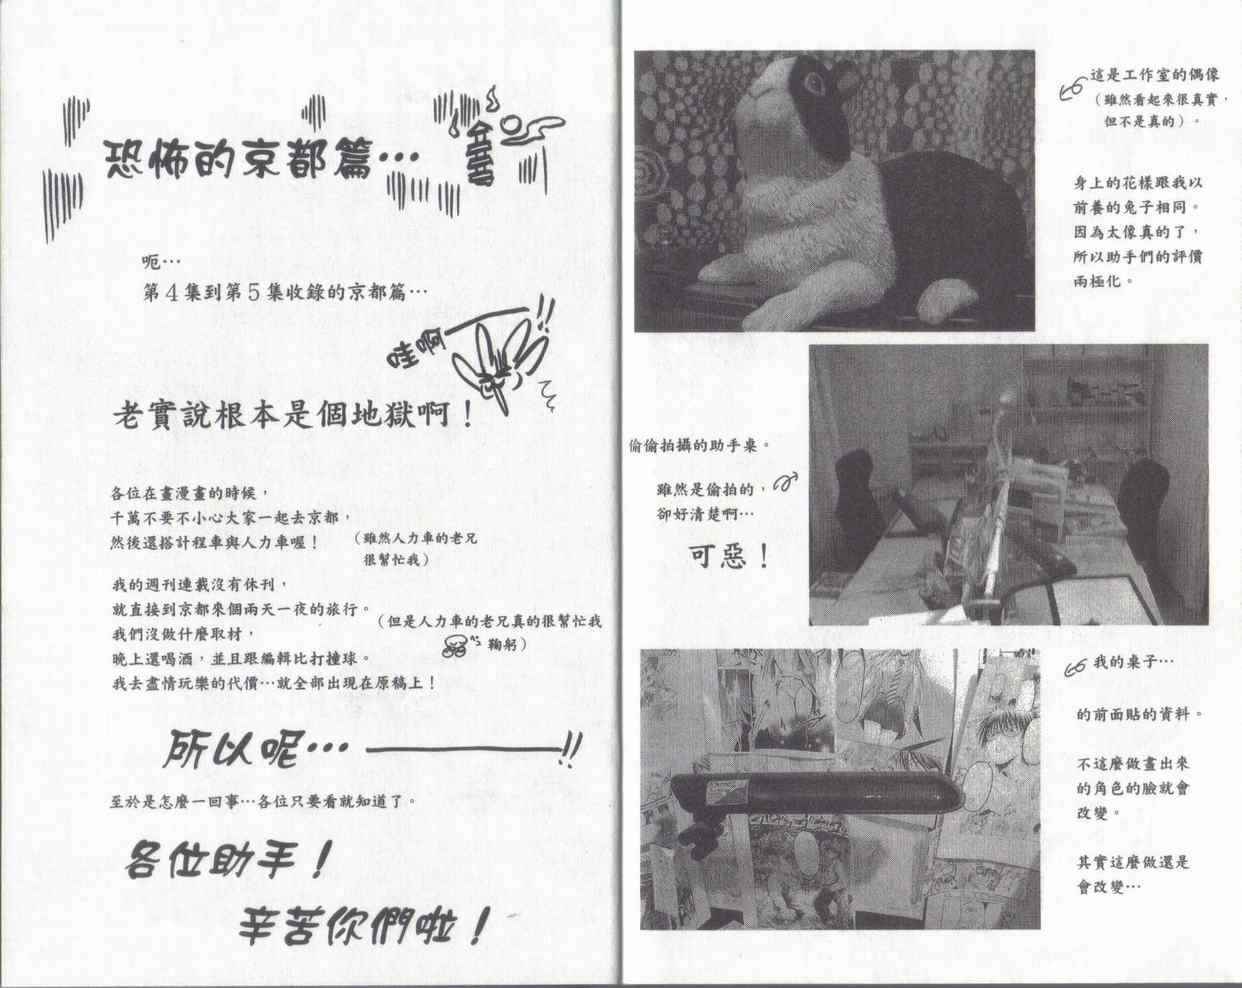 恐怖的京都篇…
呃…
第4集到第5集收錄的京都篇…
哇啊
!!
老實說根本是個地獄啊！
各位在畫漫畫的時候，
千萬不要不小心大家一起去京都，
然後還搭計程車與人力車喔！
（雖然人力車的老兄
很幫忙我）
我的週刊連載沒有休刊，
就直接到京都來個兩天一夜的旅行。
我們沒做什麼取材，
（但是人力車的老兄真的很幫忙我
鞠躬）
晚上還喝酒，並且跟編輯比打撞球。
我去盡情玩樂的代價…就全部出現在原稿上！
所以呢…——!!
至於是怎麼一回事…各位只要看就知道了。
各位助手！
辛苦你們啦！
這是工作室的偶像
（雖然看起來很真實，
但不是真的）。
身上的花樣跟我以
前養的兔子相同。
因為太像真的了，
所以助手們的評價
兩極化。
偷偷拍攝的助手桌。
雖然是偷拍的，
卻好清楚啊…
可惡！
我的桌子…
的前面貼的資料。
不這麼做畫出來
的角色的臉就會
改變。
其實這麼做還是
會改變…